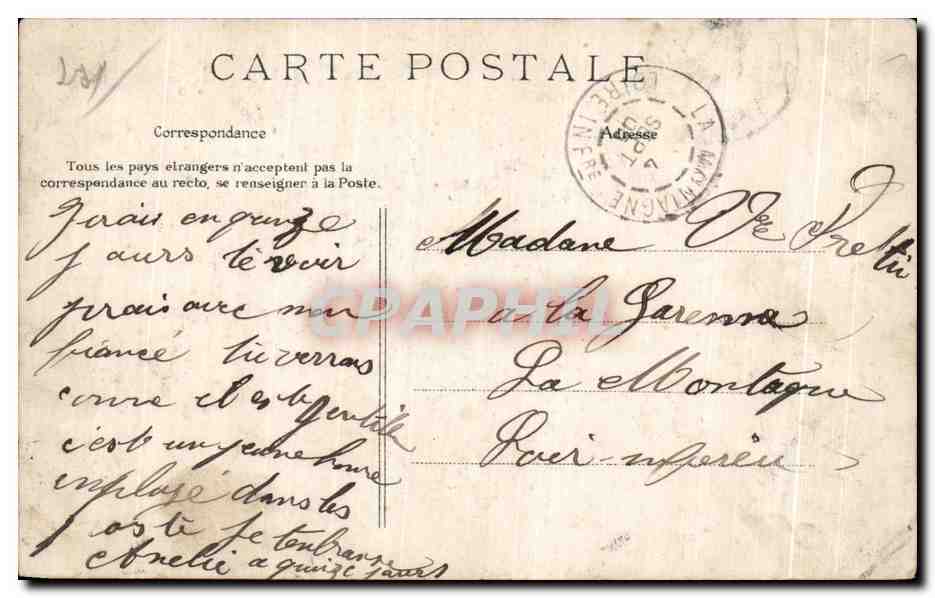 231
CARTE POSTALE
Correspondance
Adresse
Tous les pays étrangers n'acceptent pas la
correspondance au recto, se renseigner à la Poste.
LA MONTAGNE
LOIRE INFRE
J irais en quinze
jours te voir
jirais avec mon
fiancé tu verras
come il est gentille
c'est un jeune home
employé dans les
poste je tenbrasse
Amelie a quinze jours
Madame Vve Pretin
a la Garenne
La Montagne
Loir-nferieu
CPAPHIL